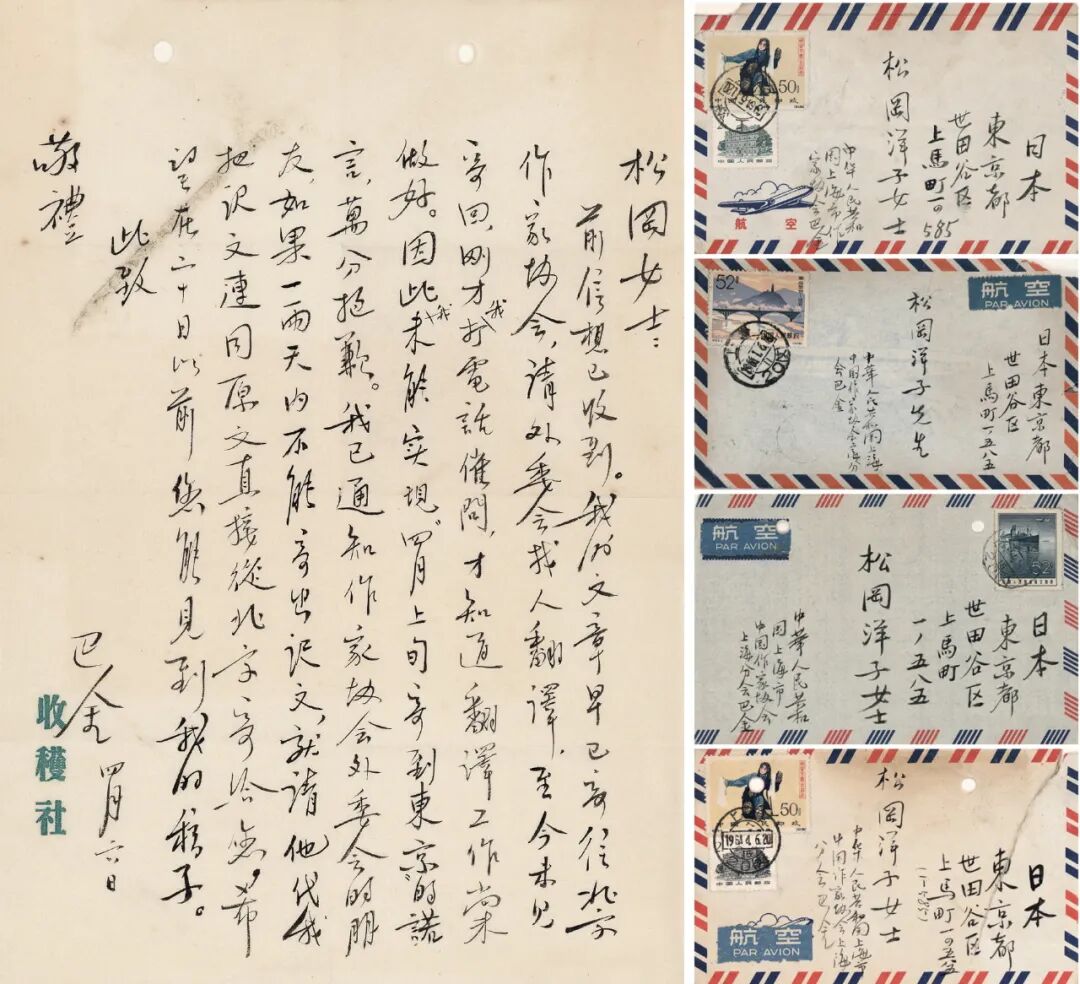 松岡女士：
前信想已收到。我的文章早已寄往北京
作家协会，请外委会找人翻譯，至今未见
寄回，刚才我打電話催問，才知道翻譯工作尚未
做好。因此我未能实现“四月上旬寄到東京”的諾
言，萬分抱歉。我已通知作家协会外委会的朋
友，如果一兩天内不能寄出译文，就請他代我
把译文連同原文直接從北京寄给您。希
望在二十日以前您能見到我的稿子。
此致
敬禮
巴金 四月六日
收穫社
日本
東京都
世田谷区
上馬町一の585
松岡洋子女士
中华人民共和
国上海市作
家协会巴金
50
中国人民邮政
航空
52
航空
PAR AVION
日本東京都
世田谷区
上馬町一、五八五
松岡洋子先生
中華人民共和国上海
中国作家协会上海分
会巴金
航空
PAR AVION
52
日本
東京都
世田谷区
上馬町
一ノ五八五
松岡洋子女士
中華人民共和
国上海市
中国作家协会
上海分会巴金
50
1964.4.6.20
中国人民邮政
航空
PAR AVION
日本
東京都
世田谷区
松岡洋子女士
中华人民共和国上海市
中国作家协会上海
分会巴金